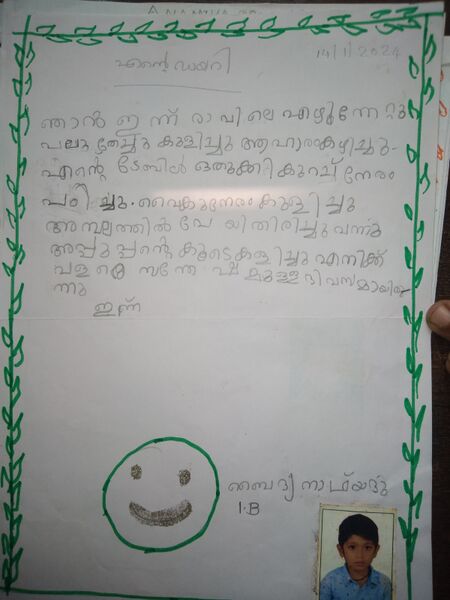 14/11/2024
എന്റെ ഡയറി
ഞാൻ ഇന്ന് രാവിലെ എഴുന്നേറ്റു
പല്ലു തേച്ചു കുളിച്ചു ആഹാരം കഴിച്ചു.
എന്റെ ടേബിൾ ഒതുക്കി കുറച്ച് നേരം
പഠിച്ചു. വൈകുന്നേരം കുളിച്ചു
അമ്പലത്തിൽ പോയി തിരിച്ചു വന്നു
അപ്പൂപ്പന്റെ കൂടെ കളിച്ചു എനിക്ക്
വളരെ സന്തോഷമുള്ള ദിവസമായിരു
ന്നു
ഇന്ന്
1.B